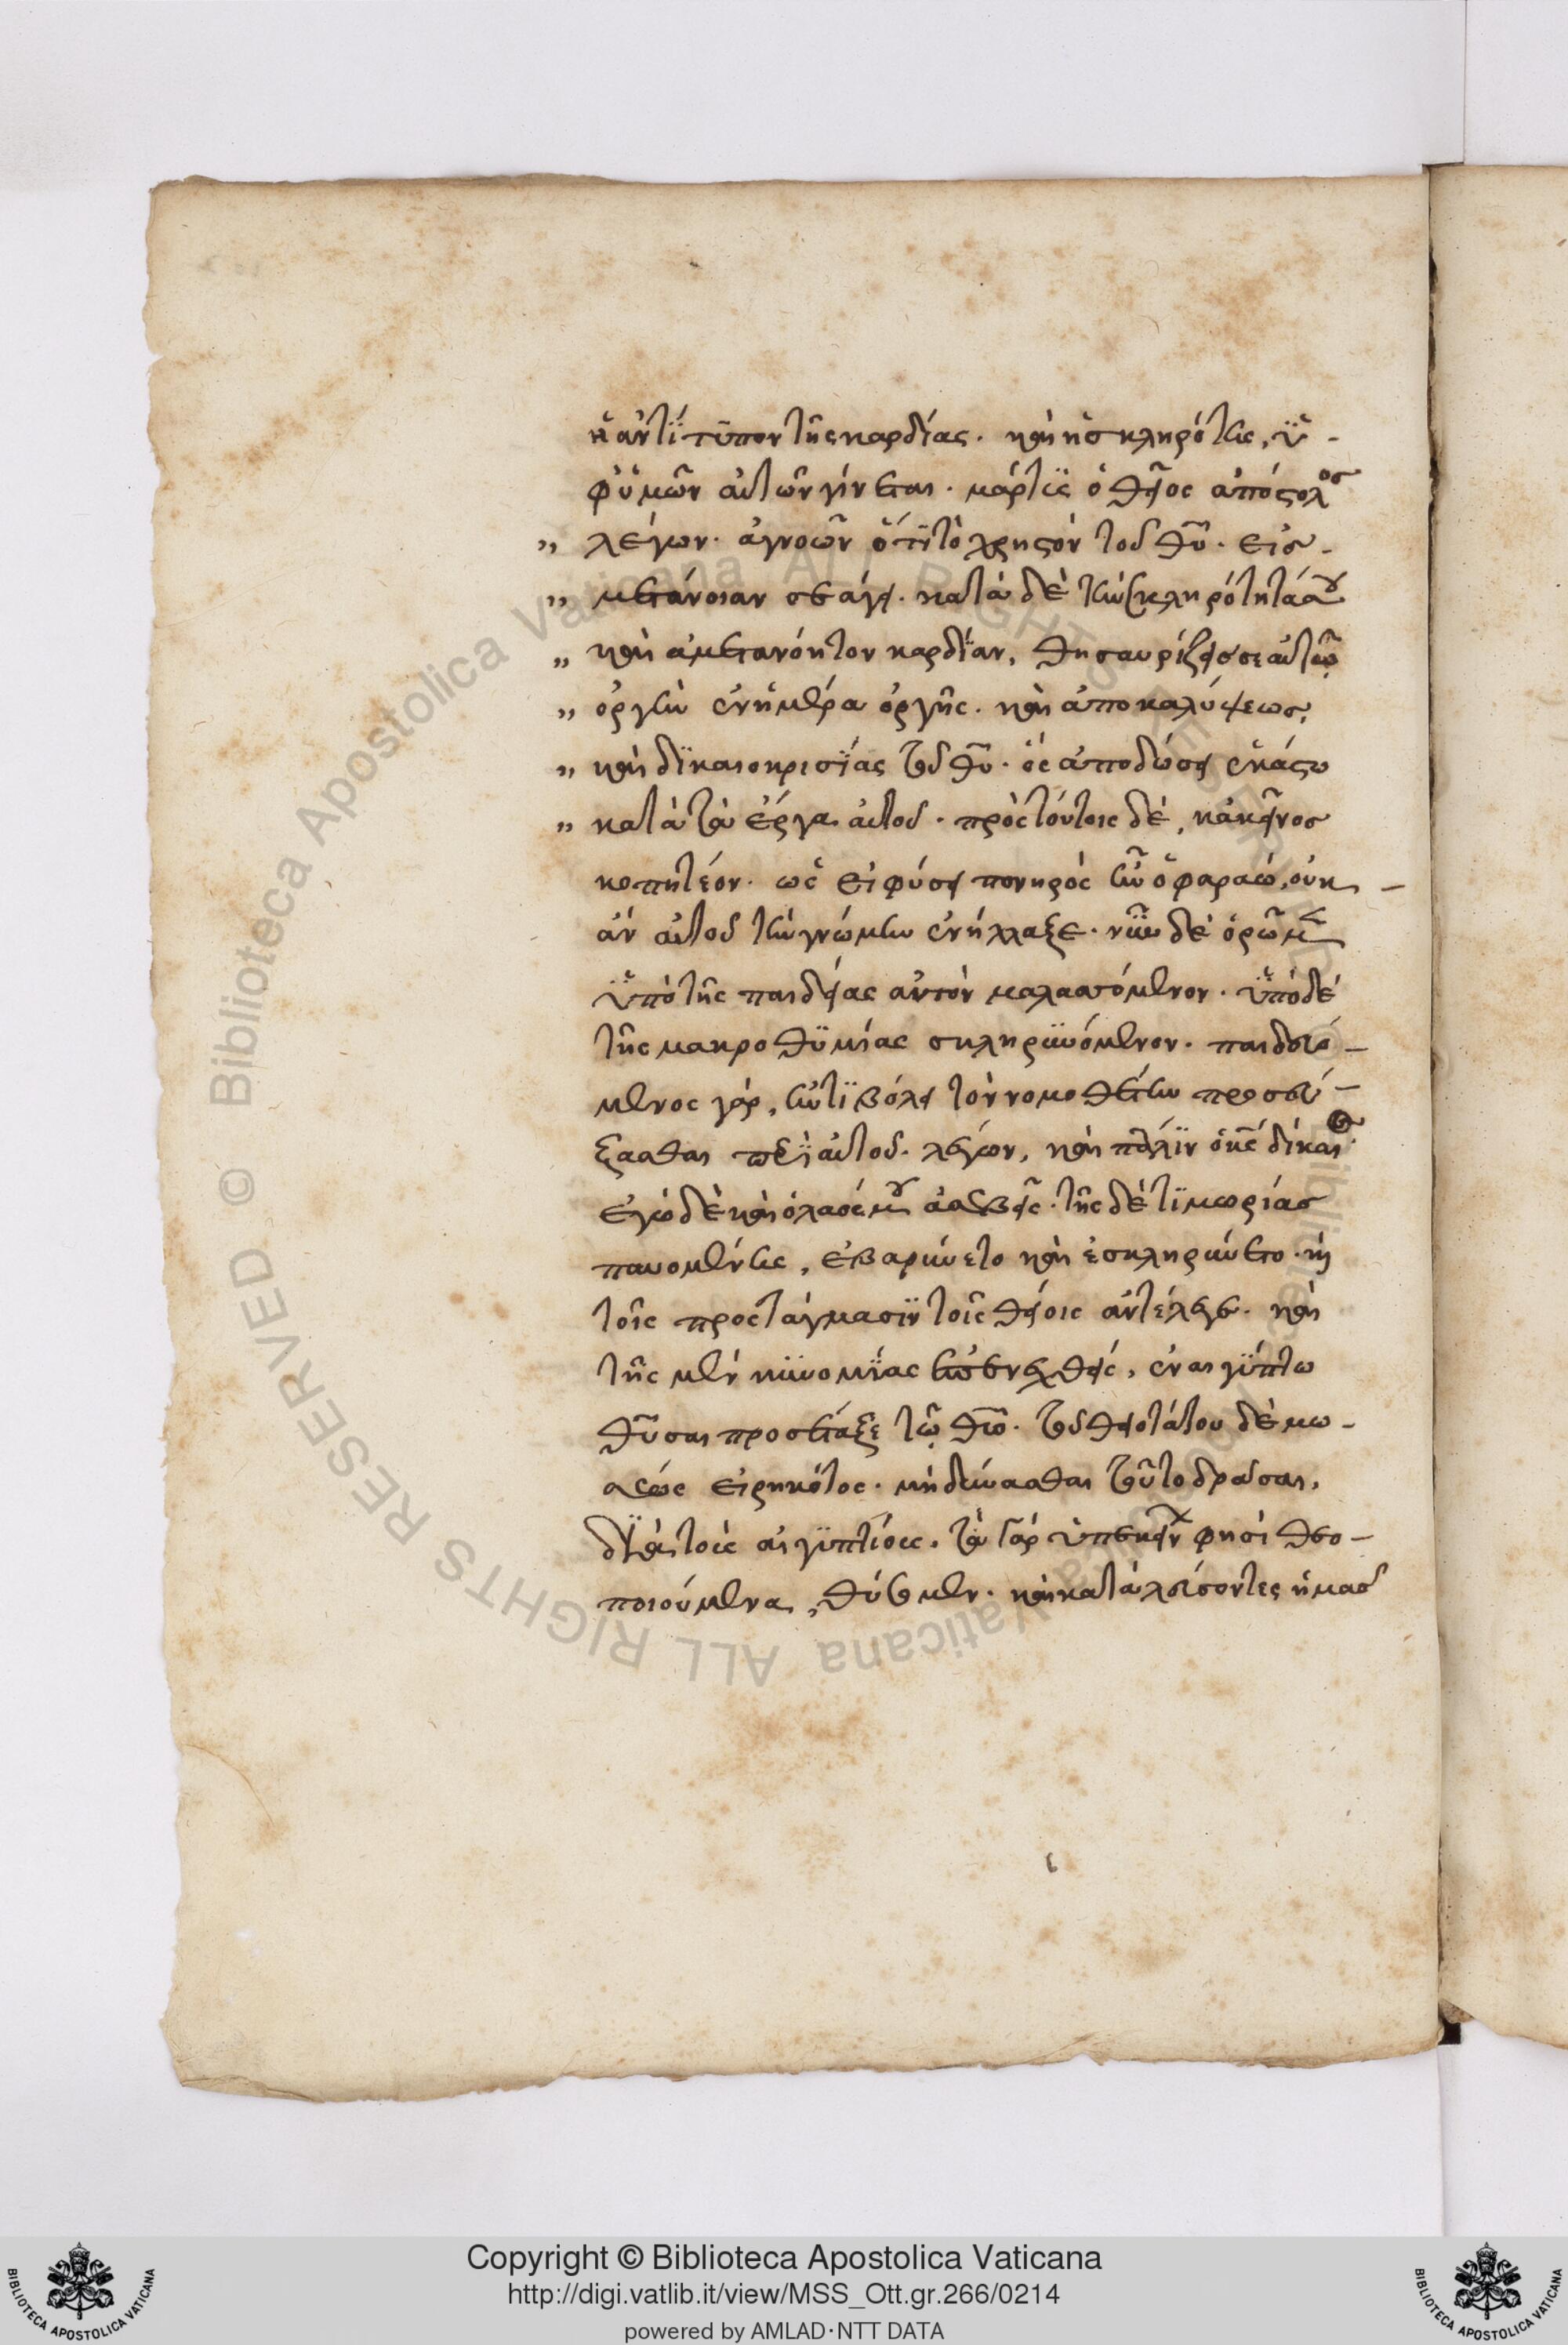 ἢ ἀντίτυπον τῆς καρδίας. καὶ ἡ σκληρότης, ὑ -
φ' ὑμῶν αὐτῶν γίνεται. μάρτυς ὁ θεῖος ἀπόστολος
„ λέγων. ἀγνοῶν ὅτι τὸ χρηστὸν τοῦ θυ̅. εἰσ -
„ μετάνοιαν σε ἄγει. κατὰ δὲ τὴν σκληρότητά σου
„ καὶ ἀμετανόητον καρδίαν, θησαυρίζεις σεαυτῷ
„ ὀργὴν ἐν ἡμέρα ὀργῆς. καὶ ἀποκαλύψεως,
„ καὶ δικαιοκρισίας τοῦ θυ̅. ὃς ἀποδώσει ἑκάστω
„ κατὰ τὰ ἔργα αὐτοῦ. πρὸς τούτοις δὲ, κἀκεῖνος
κοπητέον. ὡς εἰ φύσει πονηρὸς ἦν ὁ φαραώ, οὐκ -
ἂν αὐτοῦ τὴν γνώμην ἐνήλλαξε. νῦν δὲ ὁρῶμεν
ὑπὸ τῆς παιδείας αὐτὸν μαλασσόμενον. ὑπὸ δὲ
τῆς μακροθυμίας σκληρυνόμενον. παιδευό -
μενος γὰρ, ἠντιβόλει τὸν νομοθέτην προσεύ -
ξασθαι περὶ αὐτοῦ. λέγων, καὶ πάλιν ὁ κς̅ δίκαιος
ἐγὼ δὲ καὶ ὁ λαός μου ἀσεβεῖς. τῆς δὲ τιμωρίας
παυομένης, ἐβαρύνετο καὶ ἐσκληρύνετο. καὶ
τοῖς προστάγμασιν τοῖς θείοις ἀντέλεγε. καὶ
τῆς μὲν κυνομυίας ἐπενεχθείσης, ἐν αἰγύπτω
θῦσαι προσέταξε τῷ θω̅. τοῦ θειοτάτου δὲ μω -
σέως εἰρηκότος. μὴ δύνασθαι τοῦτο δρᾶσαι,
διὰ τοὺς αἰγυπτίους. τὰ γὰρ ὑπ' ἐκείνων φησὶ θεο -
ποιούμενα, θύομεν. καὶ καταλεύσοντες ἡμᾶς
Copyright © Biblioteca Apostolica Vaticana
http://digi.vatlib.it/view/MSS_Ott.gr.266/0214
powered by AMLAD·NTT DATA